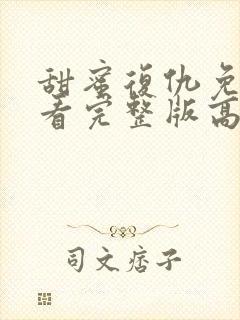 甜蜜復仇免
看完整版高
司文痞子